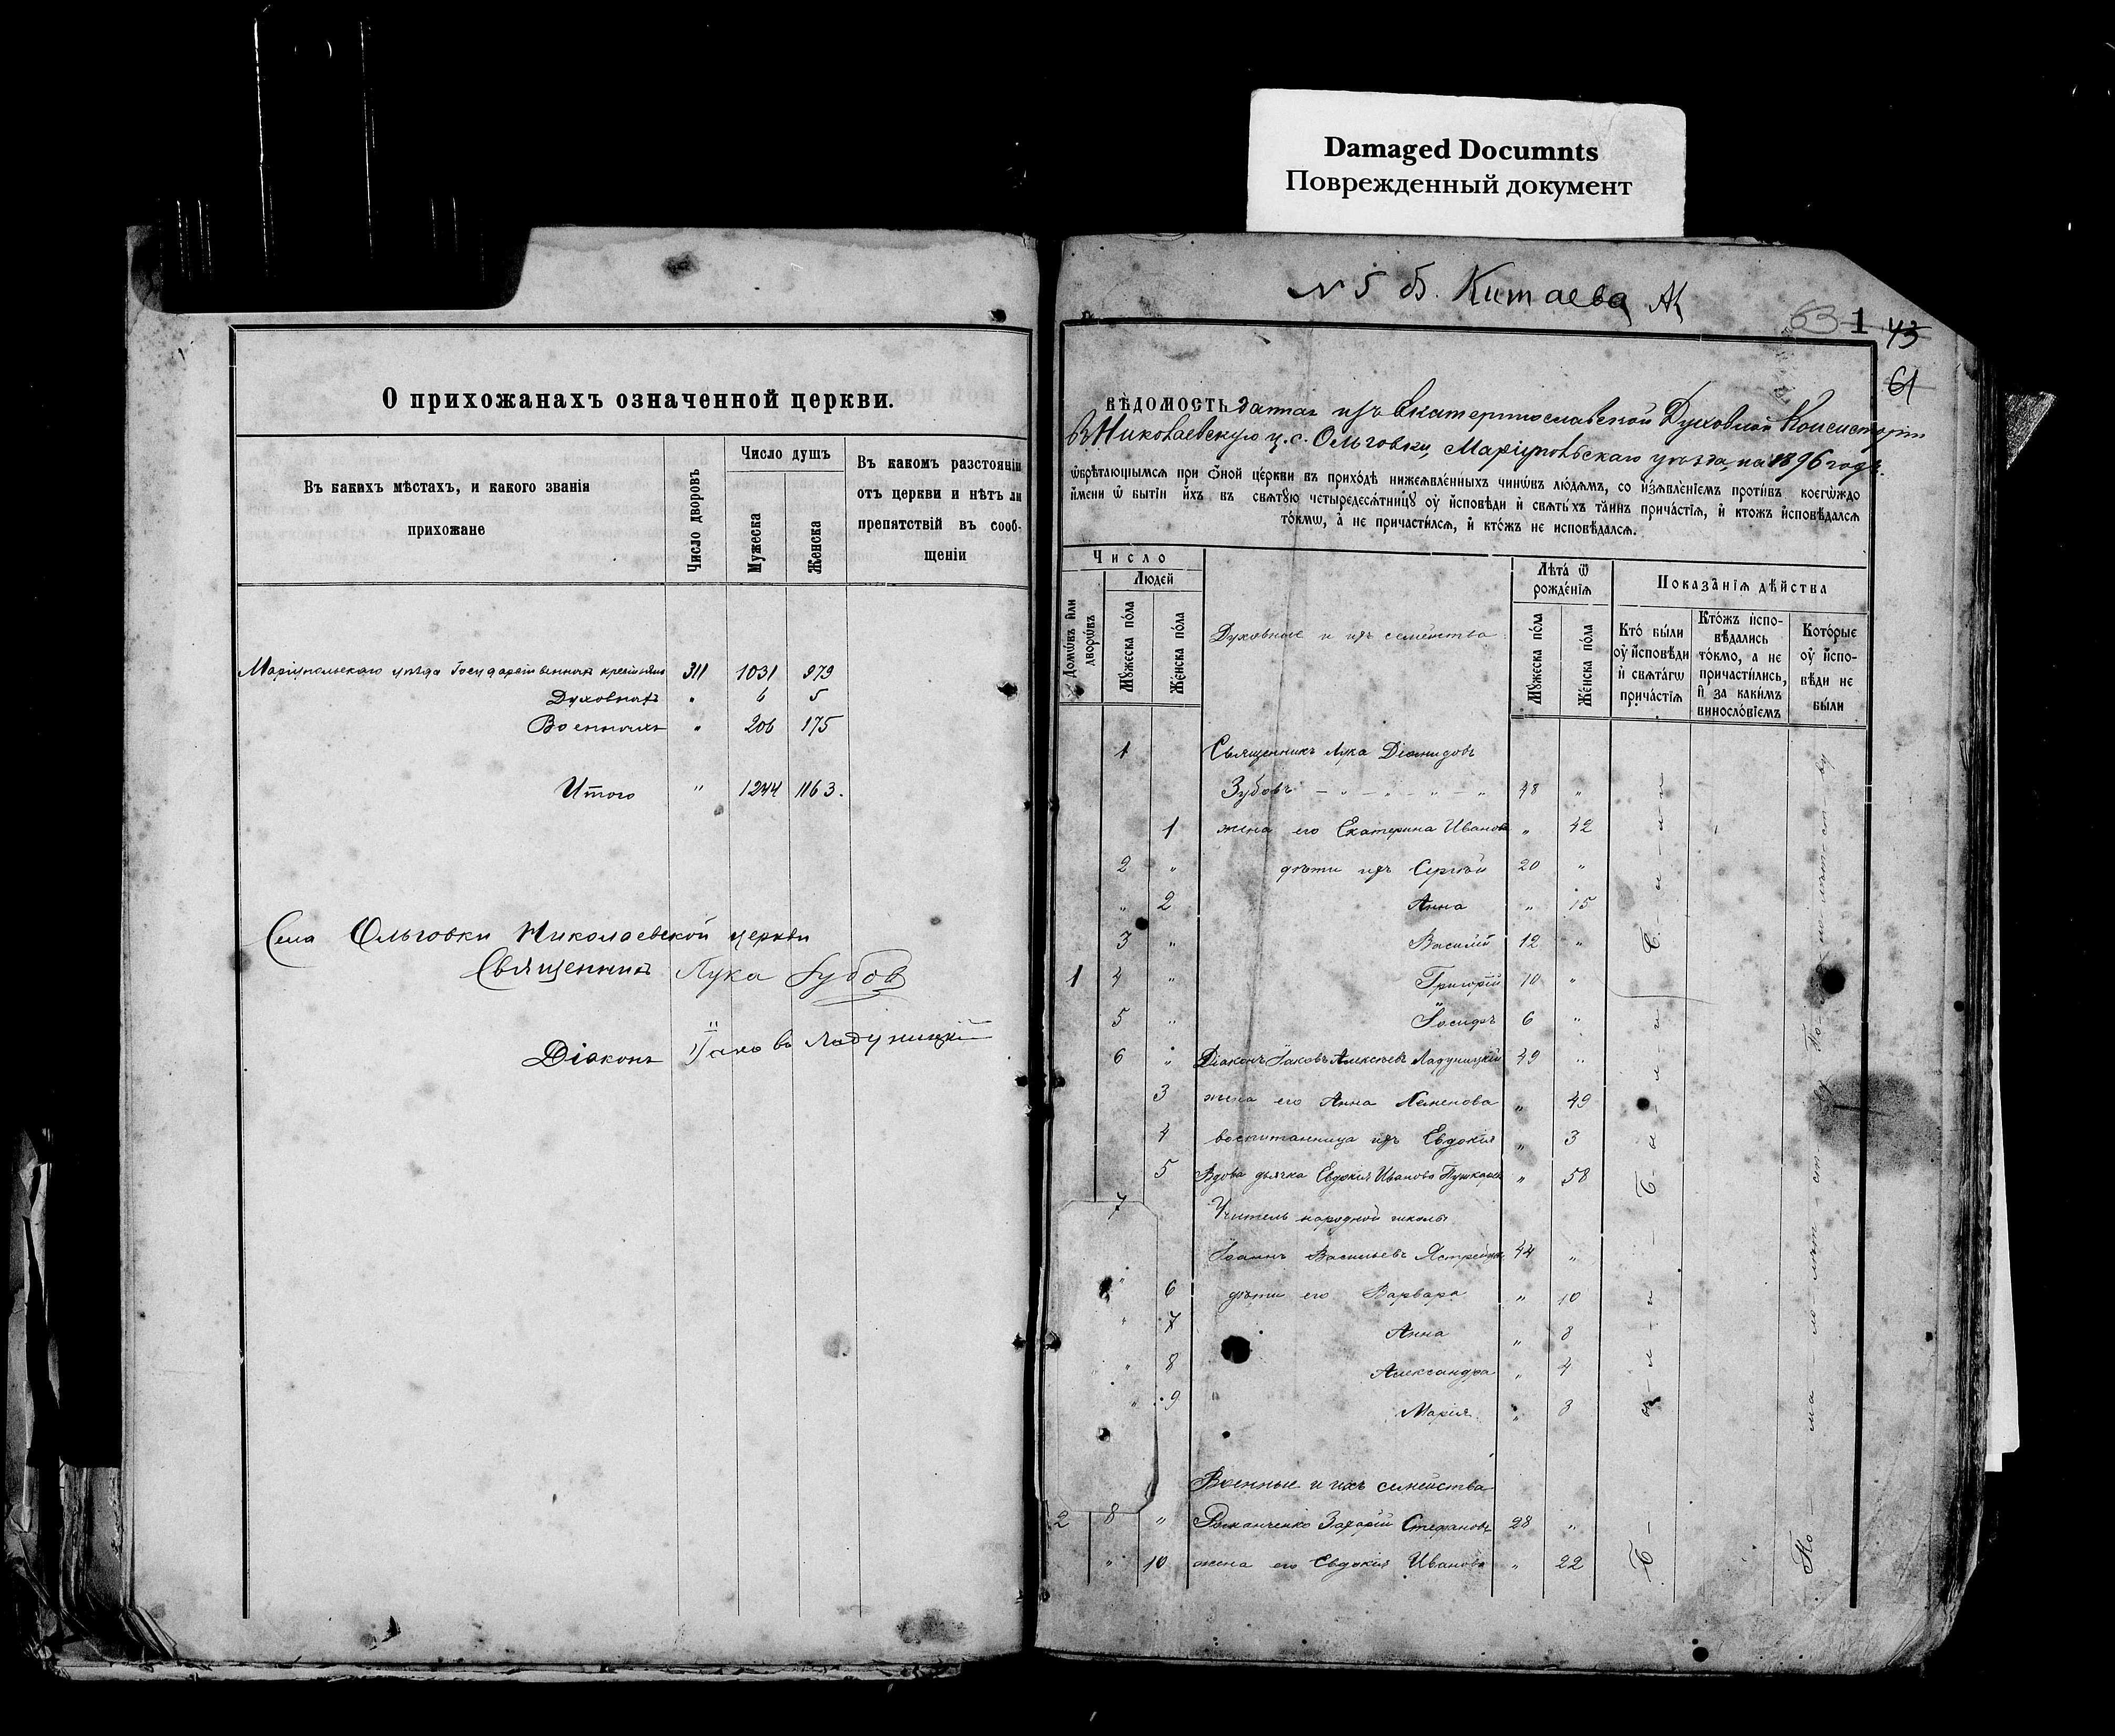 Damaged Documnts
Поврежденный документ
О прихожанахъ означенной церкви.
Въ какихъ мѣстахъ, и какого званія прихожане
Число дворовъ
Число душъ
Мужеска
Женска
Въ какомъ разстояніи отъ церкви и нѣтъ ли препятствій въ сообщеніи
Маріупольскаго уѣзда Государственныхъ крестьянъ 311 1031 979
Духовныхъ " 6 5
Военныхъ " 206 175
Итого " 1244 1163.
Села Ольговки Николаевской церкви
Священникъ Лука Зубов
Діаконъ Іаковъ Ладуницкій
N 5 б. Китаева
63 1 43
61
ВѢДОМОСТЬ данная изъ Екатеринославской Духовной Консисторіи
въ Николаевскую ц. с. Ольговки, Маріупольскаго уѣзда, на 1896 годъ.
ѡбрѣтающымсѧ при ѻ҆ной це́ркви въ прихо́дѣ нижеѧвле́нныхъ чинѡ́въ лю́дѧмъ, со и҆з̾ѧвле́нїемъ проти́въ коегѡ́ждо
и҆́мени ѡ҆ бытїи́ и҆́хъ въ свѧтꙋ́ю четыредесѧ́тницꙋ ᲂу҆ и҆́сповѣди и҆ свѧты́хъ та́инъ прича́стїѧ, и҆ кто́жъ и҆сповѣ́далсѧ
то́кмѡ, а҆ не причасти́лсѧ, и҆ кто́жъ не исповѣ́далсѧ.
Число
Домѡ́въ и҆ли дворѡ́въ
Людей
Мꙋ́жеска по́ла
Же́нска по́ла
Духовные и ихъ семейства
Лѣ́та ѿ рожде́нїѧ
Мꙋ́жеска по́ла
Же́нска по́ла
Показа́нїѧ дѣ́йства
Кто́ бы́ли ᲂу҆ и҆́сповѣди и҆ свѧта́гѡ прича́стїѧ
Кто́жъ и҆спо-вѣ́дались то́кмо, а не причасти́лись, и҆ за каки́мъ виносло́вїемъ
Кото́рые ᲂу҆ и҆́спо-вѣди не бы́ли
1 Священникъ Лука
Зубовъ 48 "
1 жена его Екатерина Иванова " 42
2 " дѣти ихъ Сергѣй 20 "
" 2 Анна " 15
3 " Василій 12 "
1 4 " Григорій 10 "
5 " Іосифъ 6 "
6 " Діаконъ Іаковъ Алексѣевъ Ладуницкій 49 "
3 жена его Анна " 49
4 воспитанница ихъ Евдокія " 3
5 Вдова дьячка Евдокія Иванова " 58
7 Учитель народной школы
Іоаннъ Васильевъ 44 "
" 6 дѣти его Варвара " 10
" 7 Анна " 8
" 8 Александра " 4
" 9 Марія " 3
Военные и ихъ семейства
2 8 " Стефановъ 28 "
" 10 жена его Евдокія Иванова " 22